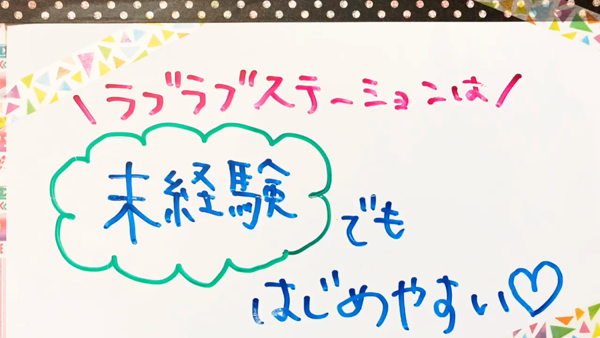 \ラブラブステーションは/
未経験
でも
はじめやすい♡